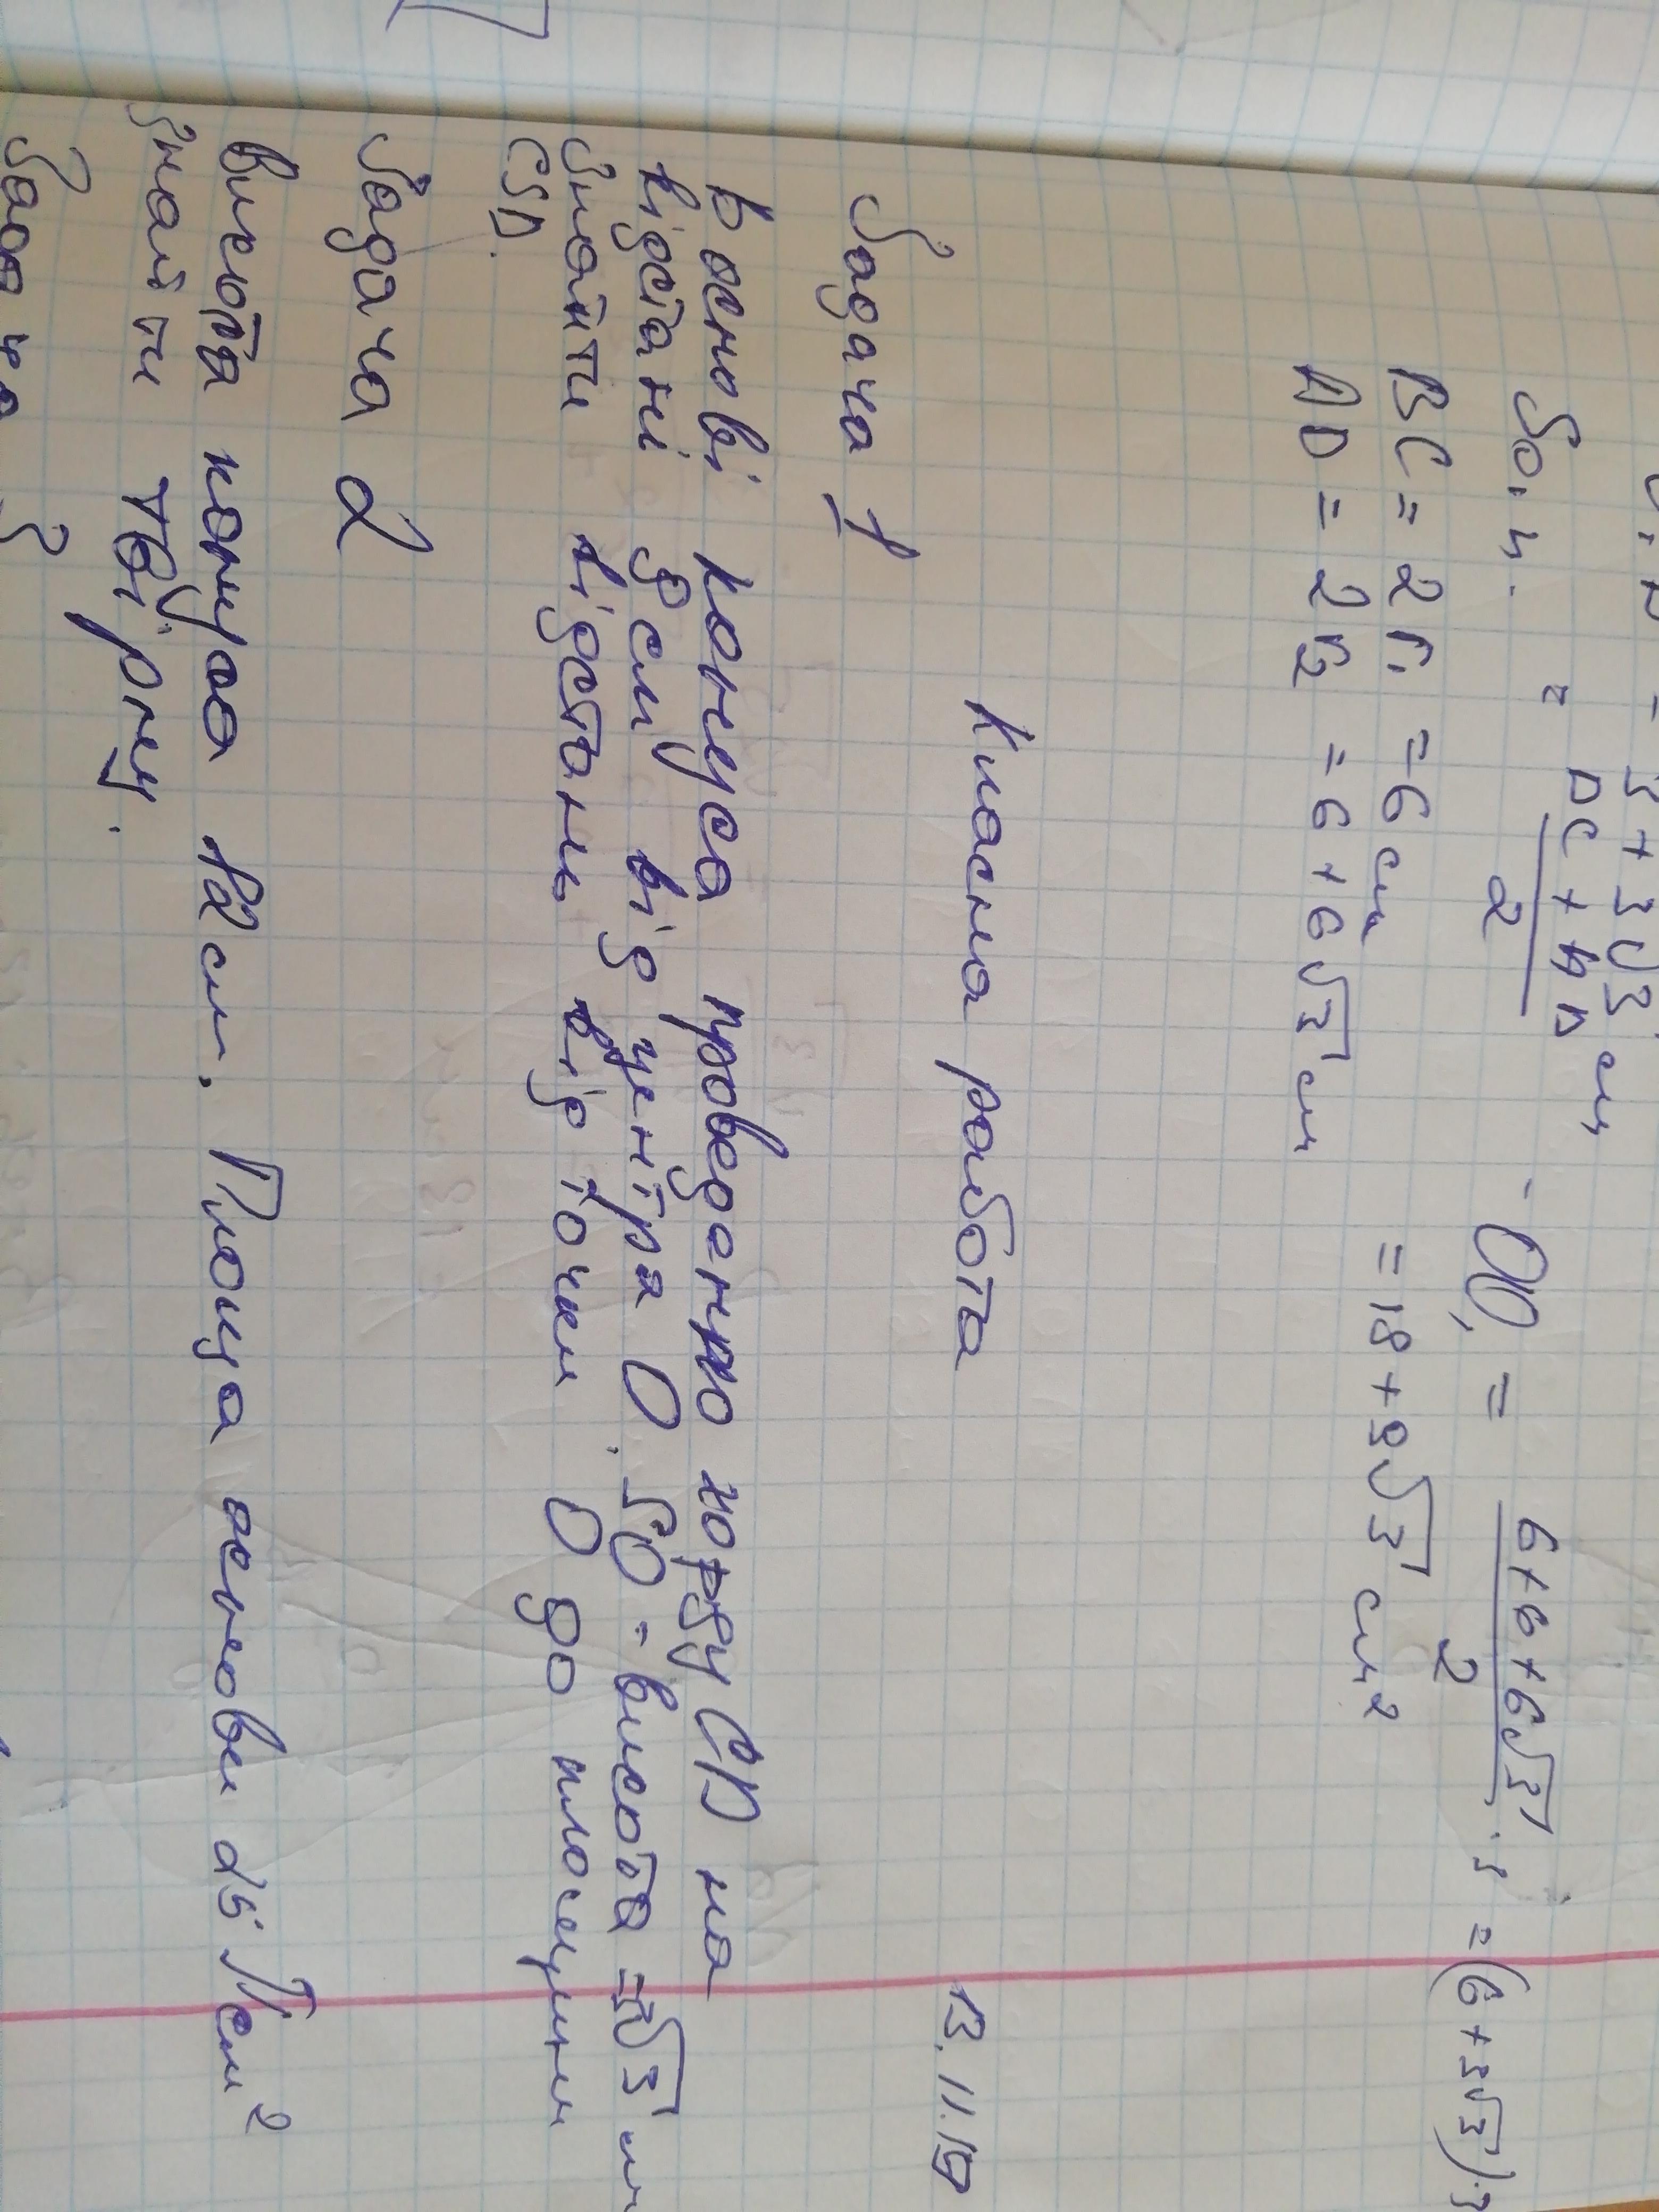 = 3 + 3√3 см
Sо.ч. = (BC + AD)/2 · OO₁ = (6+6+6√3)/2 · 3 = (6+3√3)·3
BC = 2r₁ = 6 см = 18 + 9√3 см²
AD = 2r₂ = 6 + 6√3 см
Класна работа 13.11.19
Задача 1
В основі конуса проведенно хорду CD на
відстані 9 см від центра О. SO - висота = 3√3 см
Знайти відстань від точки О до площини
CSD.
Задача 2
Висота конуса 12 см. Площа основи 25 π см²
Знайти твірну.
Задача 3